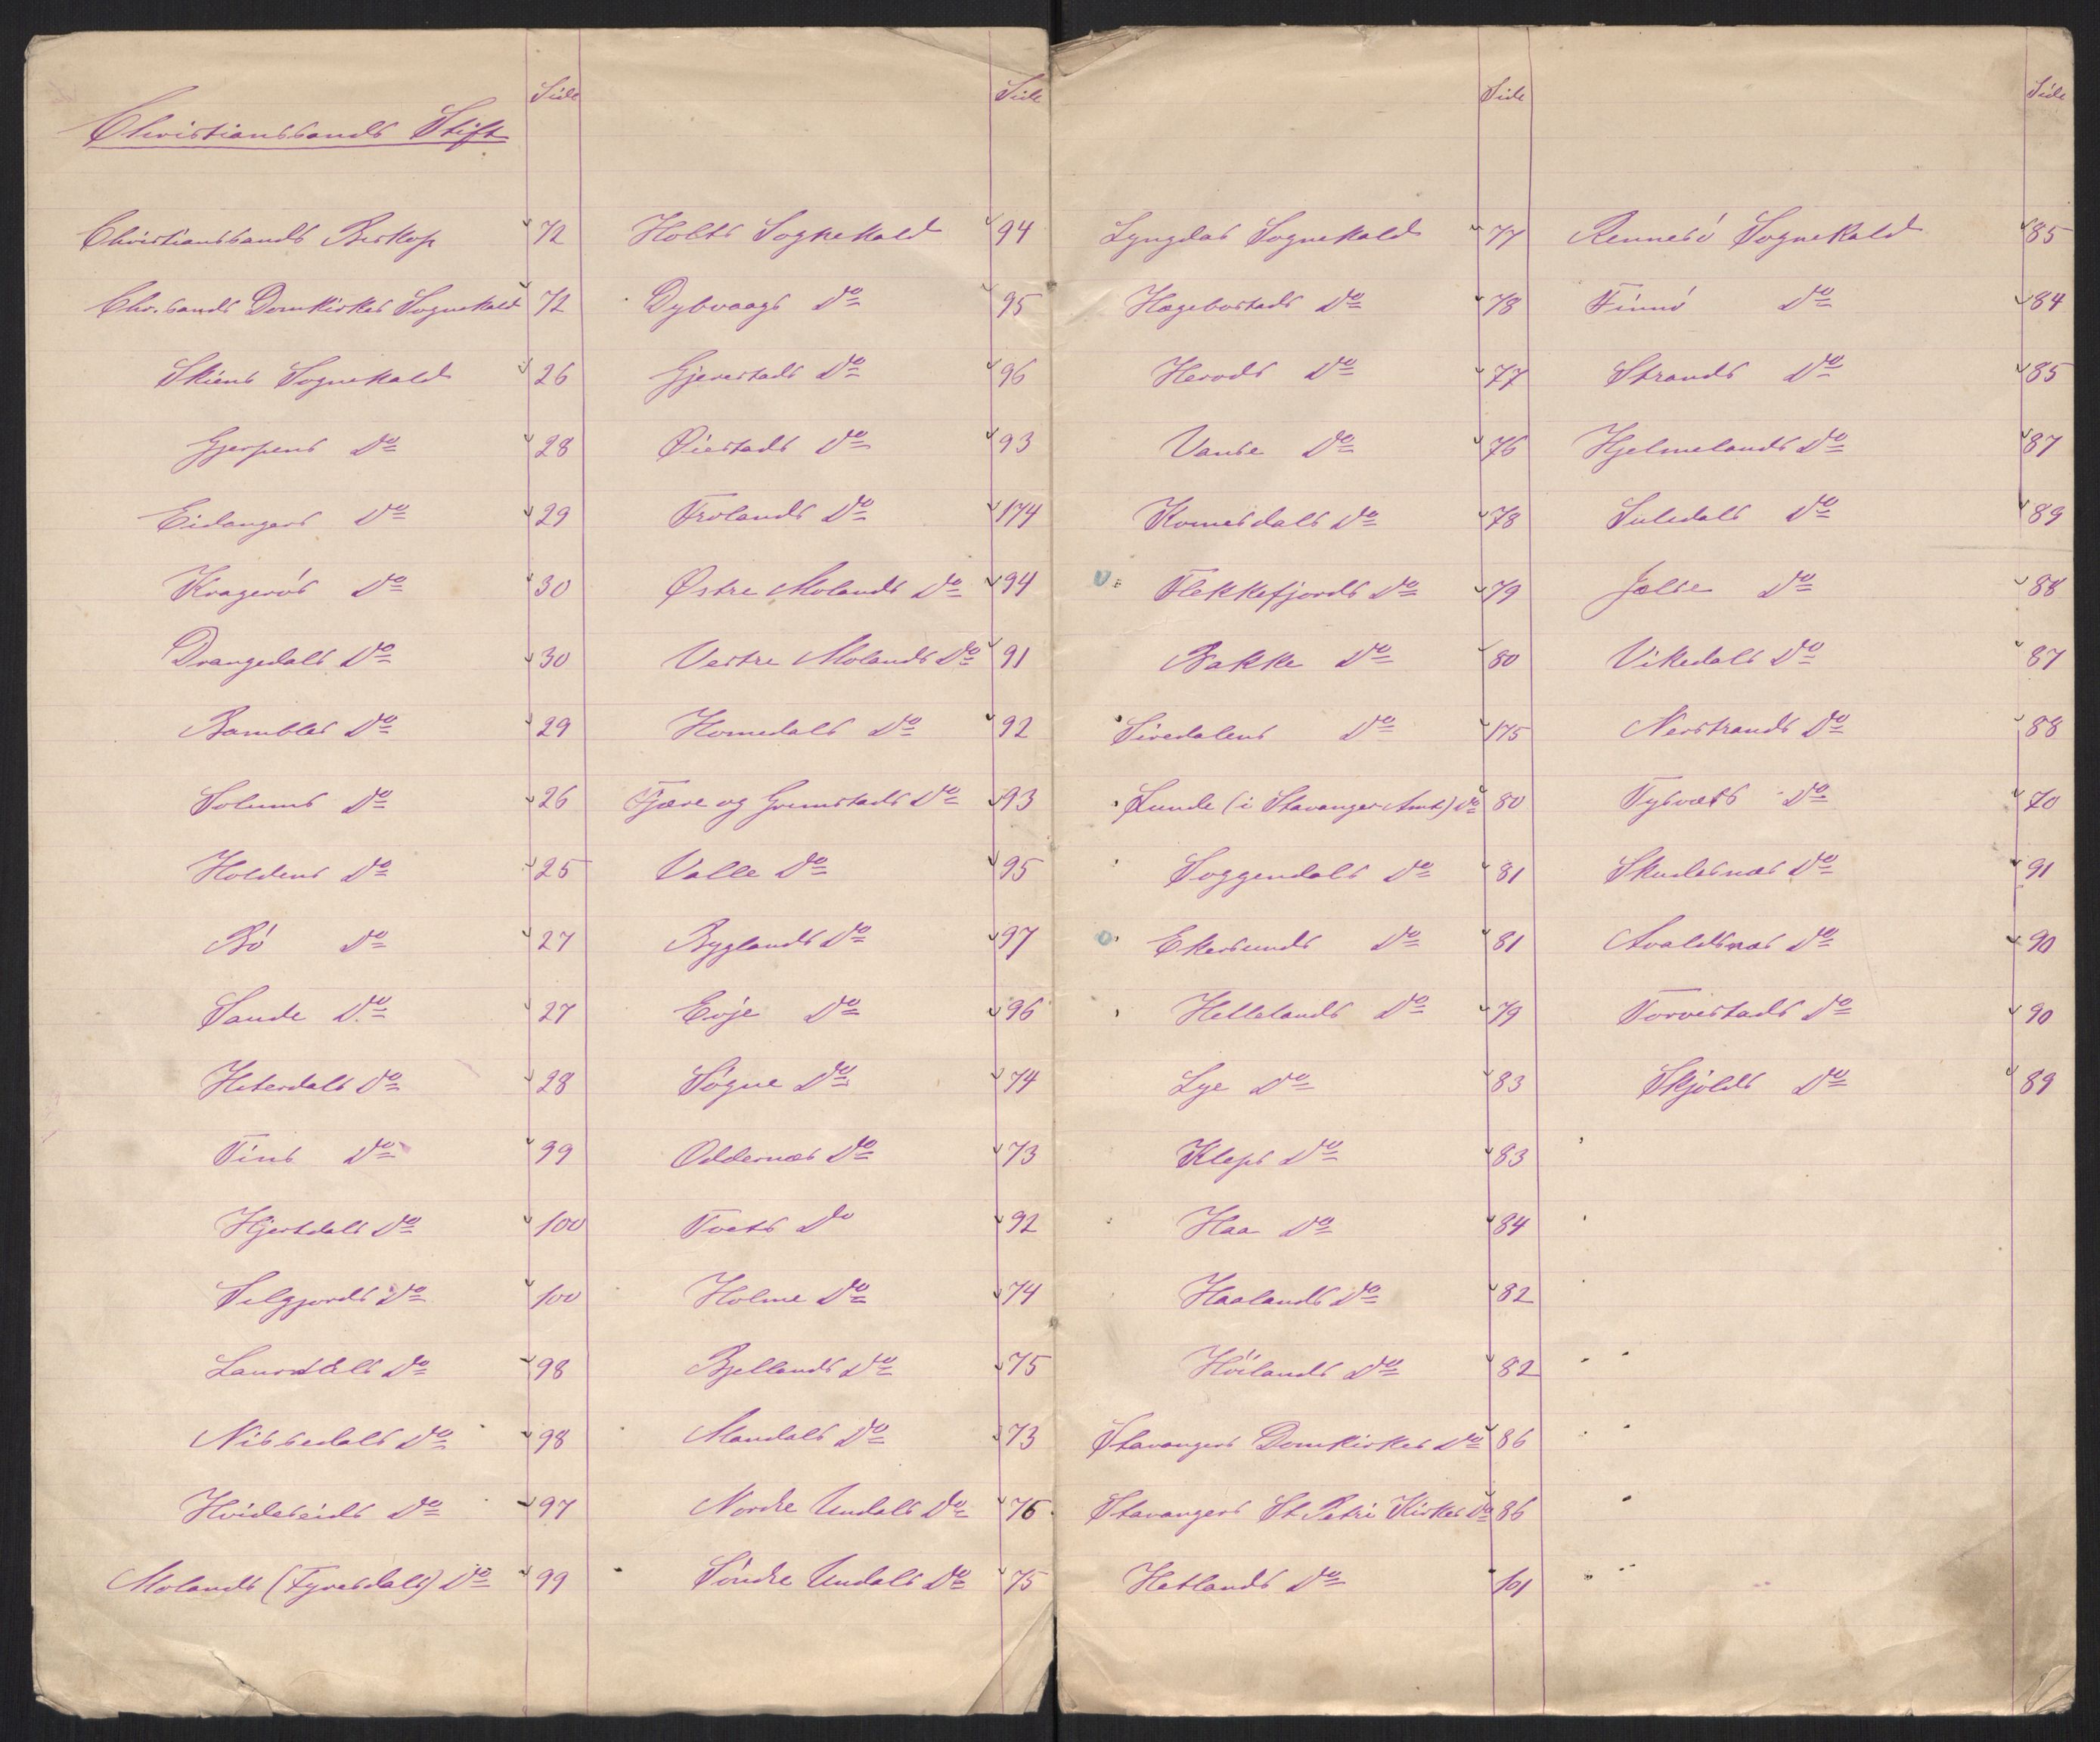 Side
Christianssands Stift
Christianssands Biskop 72
Chr.sands Domkirkes Sognekald 72
Skiens Sognekald 26
Gjerpens Do 28
Eidangers Do 29
Kragerøs Do 30
Drangedals Do 30
Bambles Do 29
Solums Do 26
Holdens Do 25
Bö Do 27
Sande Do 27
Hiterdals Do 28
Tins Do 99
Hjertdals Do 100
Silgjords Do 100
Laurdals Do 98
Nissedals Do 98
Hvideseids Do 97
Molands (Fyresdals) Do 99
Side
Holts Sognekald 94
Dybvaags Do 95
Gjerestads Do 96
Øiestads Do 93
Frolands Do 174
Østre Molands Do 94
Vestre Molands Do 91
Homedals Do 92
Fjære og Grimstads Do 93
Valle Do 95
Byglands Do 97
Evje Do 96
Søgne Do 74
Oddernæs Do 73
Tvets Do 92
Holme Do 74
Bjellands Do 75
Mandals Do 73
Nordre Undals Do 76
Söndre Undals Do 75
Side
Lyngdals Sognekald 77
Hægebostads Do 78
Herøds Do 77
Vanse Do 76
Kvinesdals Do 78
Flekkefjords Do 79
Bakke Do 80
Siredalens Do 175
Lunde (i Stavanger Amt) Do 80
Soggendals Do 81
Ekersunds Do 81
Hellelands Do 79
Lye Do 83
Kleps Do 83
Haa Do 84
Haalands Do 82
Höilands Do 82
Stavangers Domkirkes Do 86
Stavangers St. Petri Kirkes Do 86
Hetlands Do 101
Side
Rennesö Sognekald 85
Finnö Do 84
Strands Do 85
Hjelmelands Do 87
Suledals Do 89
Jælse Do 88
Vikedals Do 87
Nerstrands Do 88
Tysvæs Do 70
Skudesnæs Do 91
Avaldsnæs Do 90
Torvestads Do 90
Skjölds Do 89